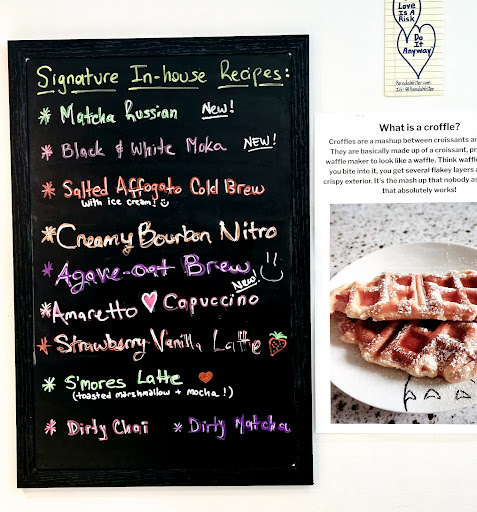 Signature In-house Recipes:
* Matcha Russian New!
* Black & White Moka NEW!
* Salted Affogato Cold Brew
with ice cream!
* Creamy Bourbon Nitro
* Agave-oat Brew
New!
* Amaretto Capuccino
* Strawberry Vanilla Latte
* S'mores Latte
(toasted marshmallow + mocha!)
* Dirty Chai * Dirty Matcha
Love
Is A
Risk
Do
It
Anyway
What is a croffle?
Croffles are a mashup between croissants
They are basically made up of a croissant,
waffle maker to look like a waffle. Think
you bite into it, you get several flakey layers
crispy exterior. It's the mash up that nobody
that absolutely works!